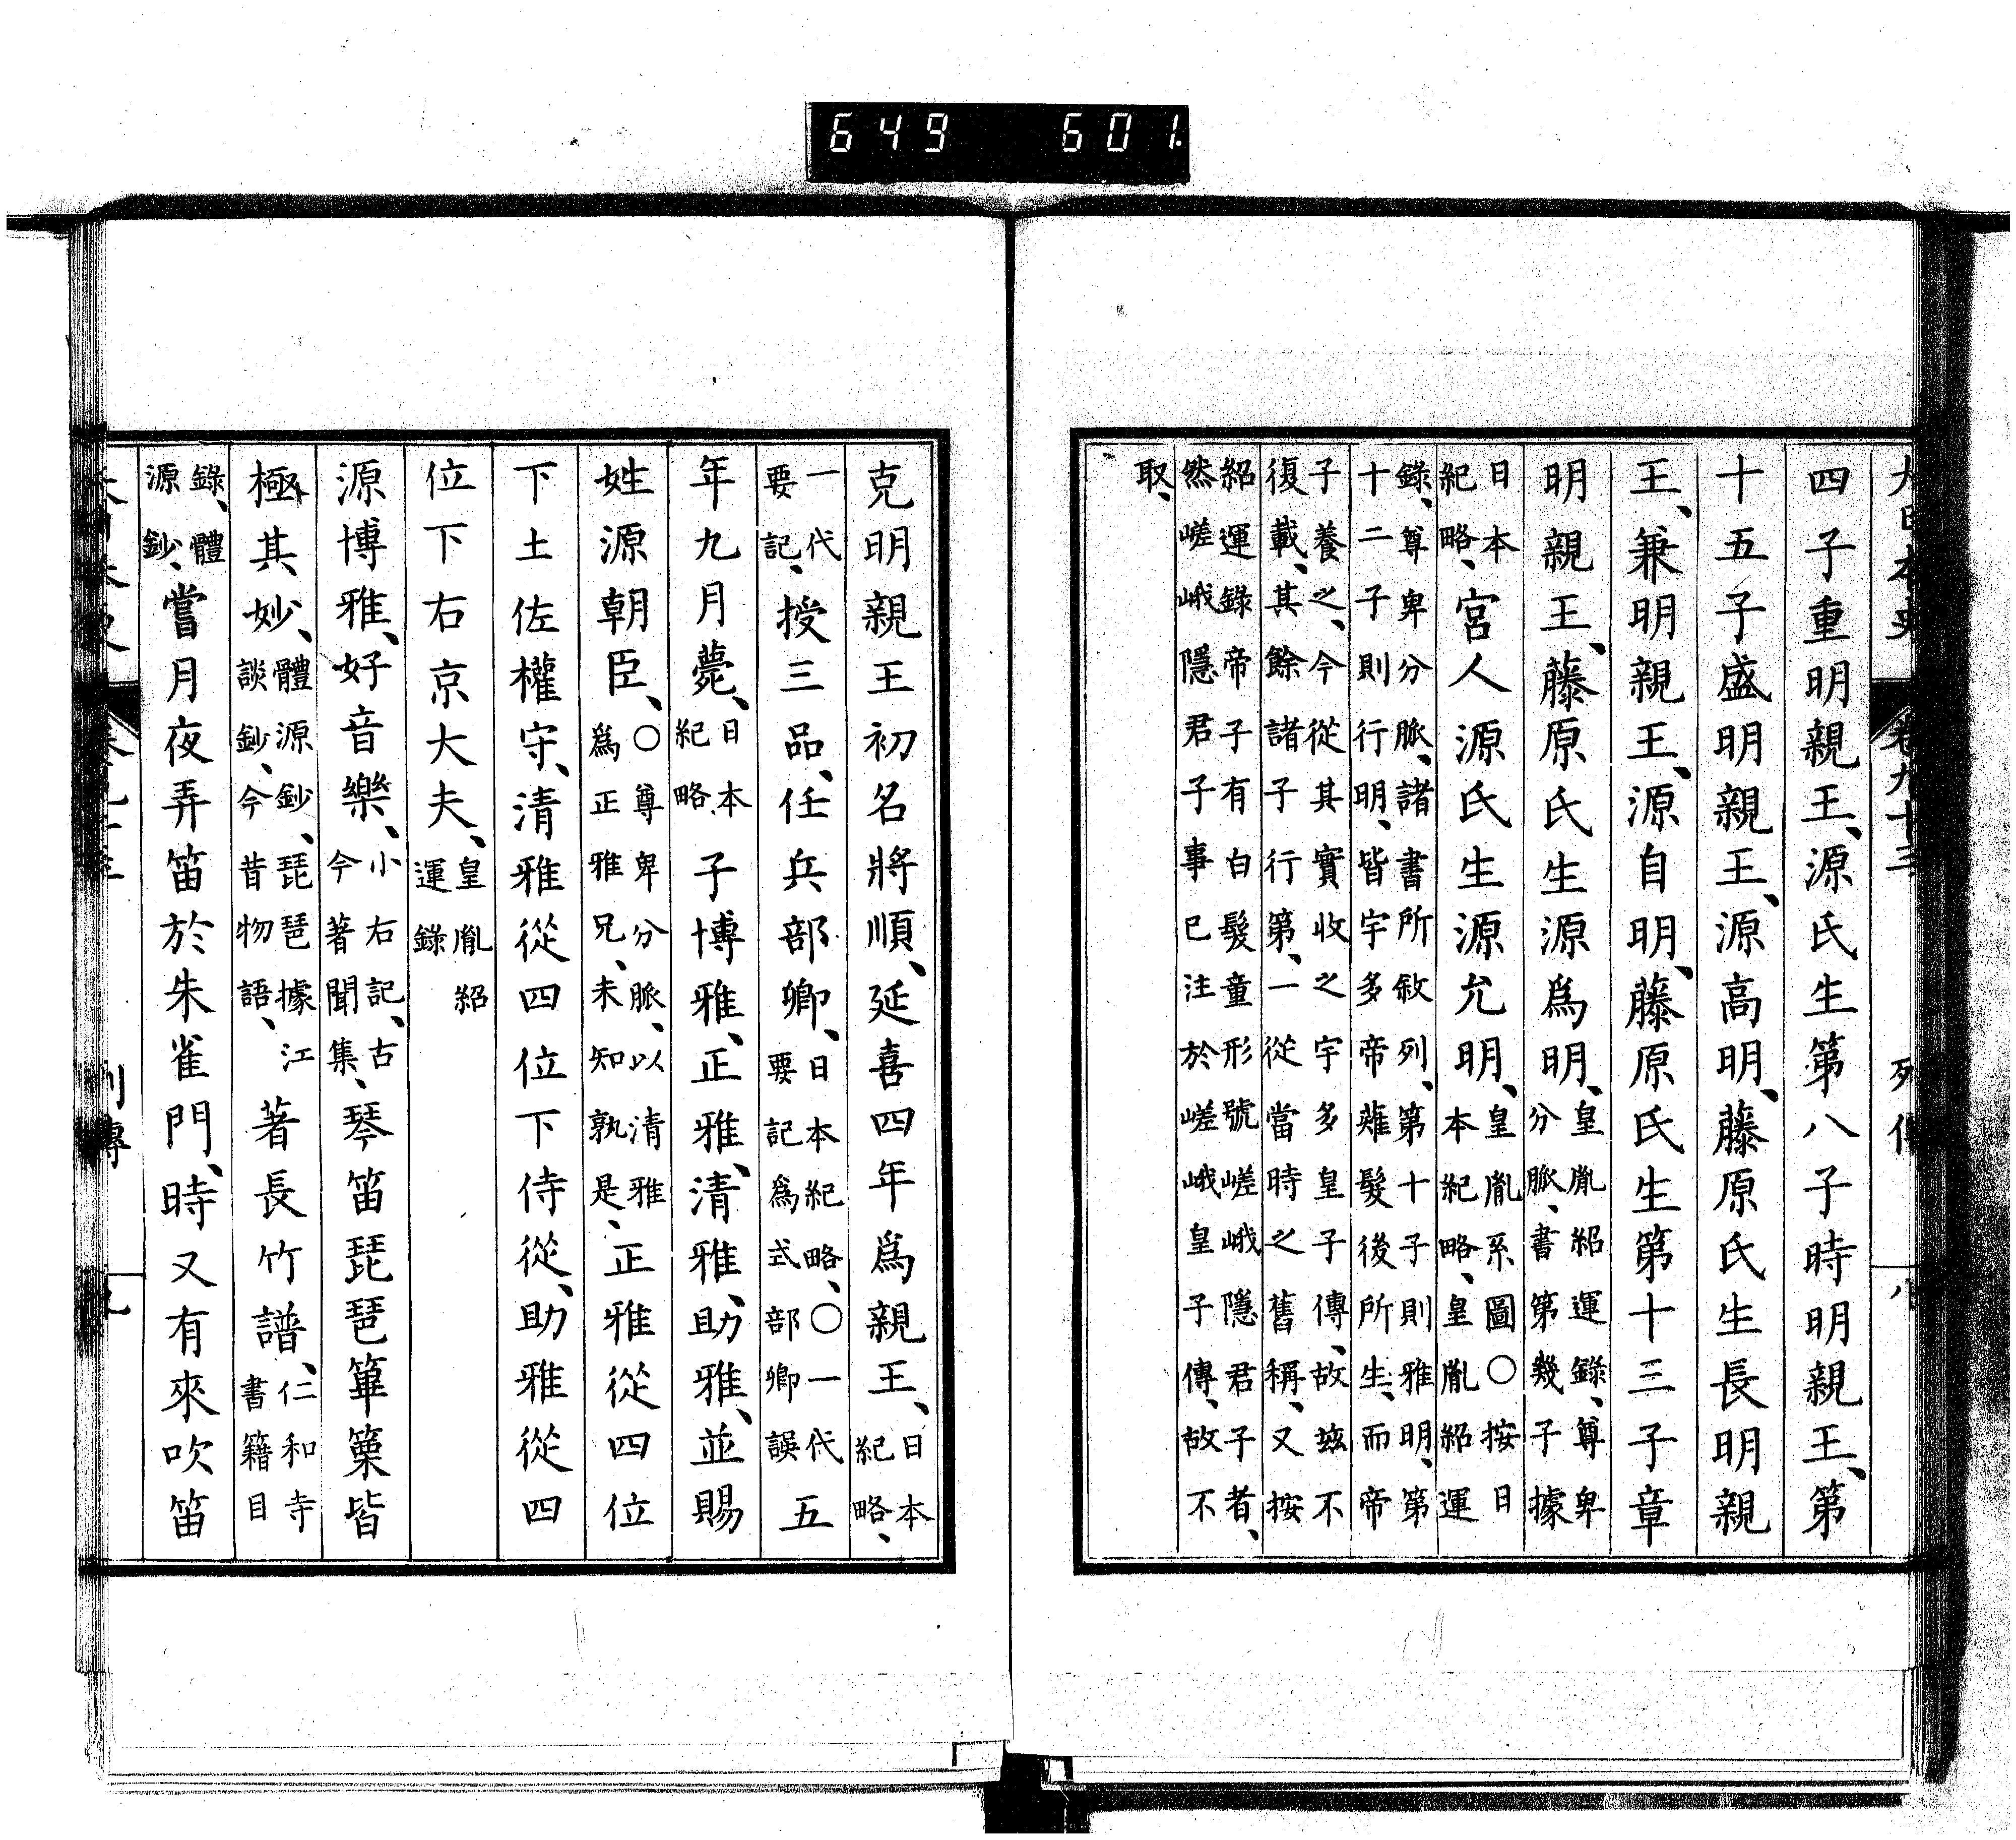 大日本史 卷九十三 列傳 八
四子重明親王、源氏生第八子時明親王、第
十五子盛明親王、源高明、藤原氏生長明親
王、兼明親王、源自明、藤原氏生第十三子章
明親王、藤原氏生源爲明、皇胤紹運錄、尊卑分脈、書第幾子據
日本紀略、宮人源氏生源允明、皇胤系圖○按日本紀略、皇胤紹運
錄、尊卑分脈、諸書所敘列、第十子則雅明、第十二子則行明、皆宇多帝薙髮後所生、而帝
子養之、今從其實收之宇多皇子傳、故玆不復載、其餘諸子行第、一從當時之舊稱、又按
紹運錄帝子有白髮童形號嵯峨隱君子者、然嵯峨隱君子事已注於嵯峨皇子傳、故不
取、
克明親王初名將順、延喜四年爲親王、日本紀略、
一代要記、授三品、任兵部卿、日本紀略、○一代要記爲式部卿誤五
年九月薨、日本紀略子博雅、正雅、清雅、助雅、並賜
姓源朝臣、○尊卑分脈、以清雅爲正雅兄、未知孰是、正雅從四位
下土佐權守、清雅從四位下侍從、助雅從四
位下右京大夫、皇胤紹運錄
源博雅、好音樂、小右記、古今著聞集、琴笛琵琶篳篥皆
極其妙、體源鈔、琵琶據江談鈔、今昔物語、著長竹譜、仁和寺書籍目
錄、體源鈔、嘗月夜弄笛於朱雀門、時又有來吹笛